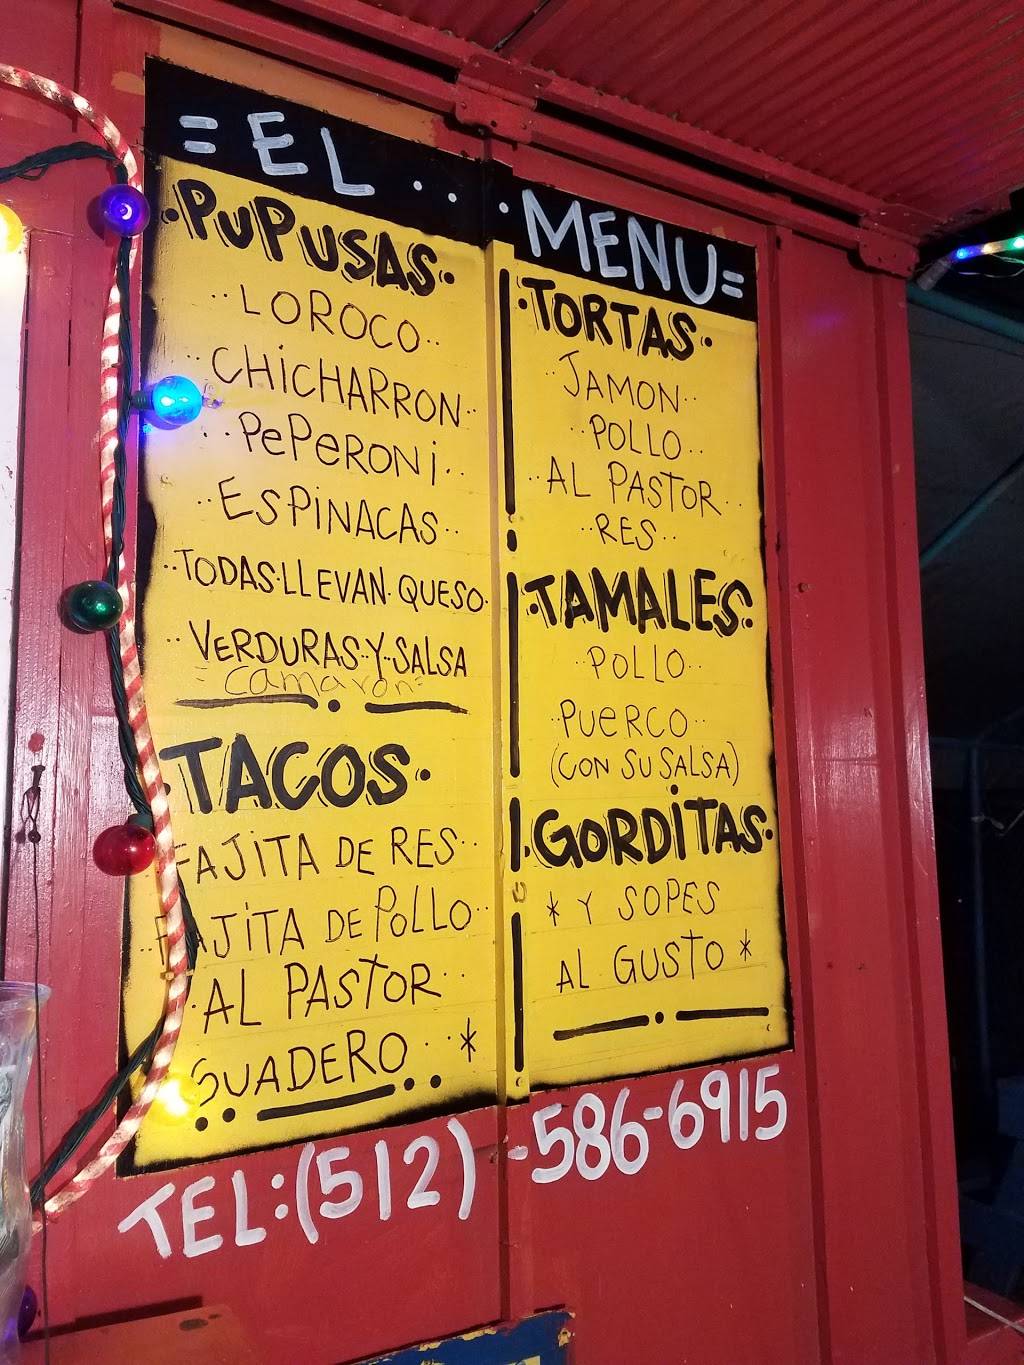 =EL... MENU=
·PUPUSAS·
··LOROCO··
··CHICHARRON··
··PEPERONI··
··ESPINACAS··
··TODAS·LLEVAN·QUESO·
··VERDURAS··Y··SALSA
=camaron=
TACOS·
FAJITA DE RES··
··FAJITA DE POLLO··
·AL PASTOR··
SUADERO··*
·TORTAS·
··JAMON··
··POLLO··
··AL PASTOR··
··RES··
·TAMALES·
··POLLO··
··PUERCO··
(CON SU SALSA)
·GORDITAS·
* Y SOPES
AL GUSTO *
TEL:(512)-586-6915